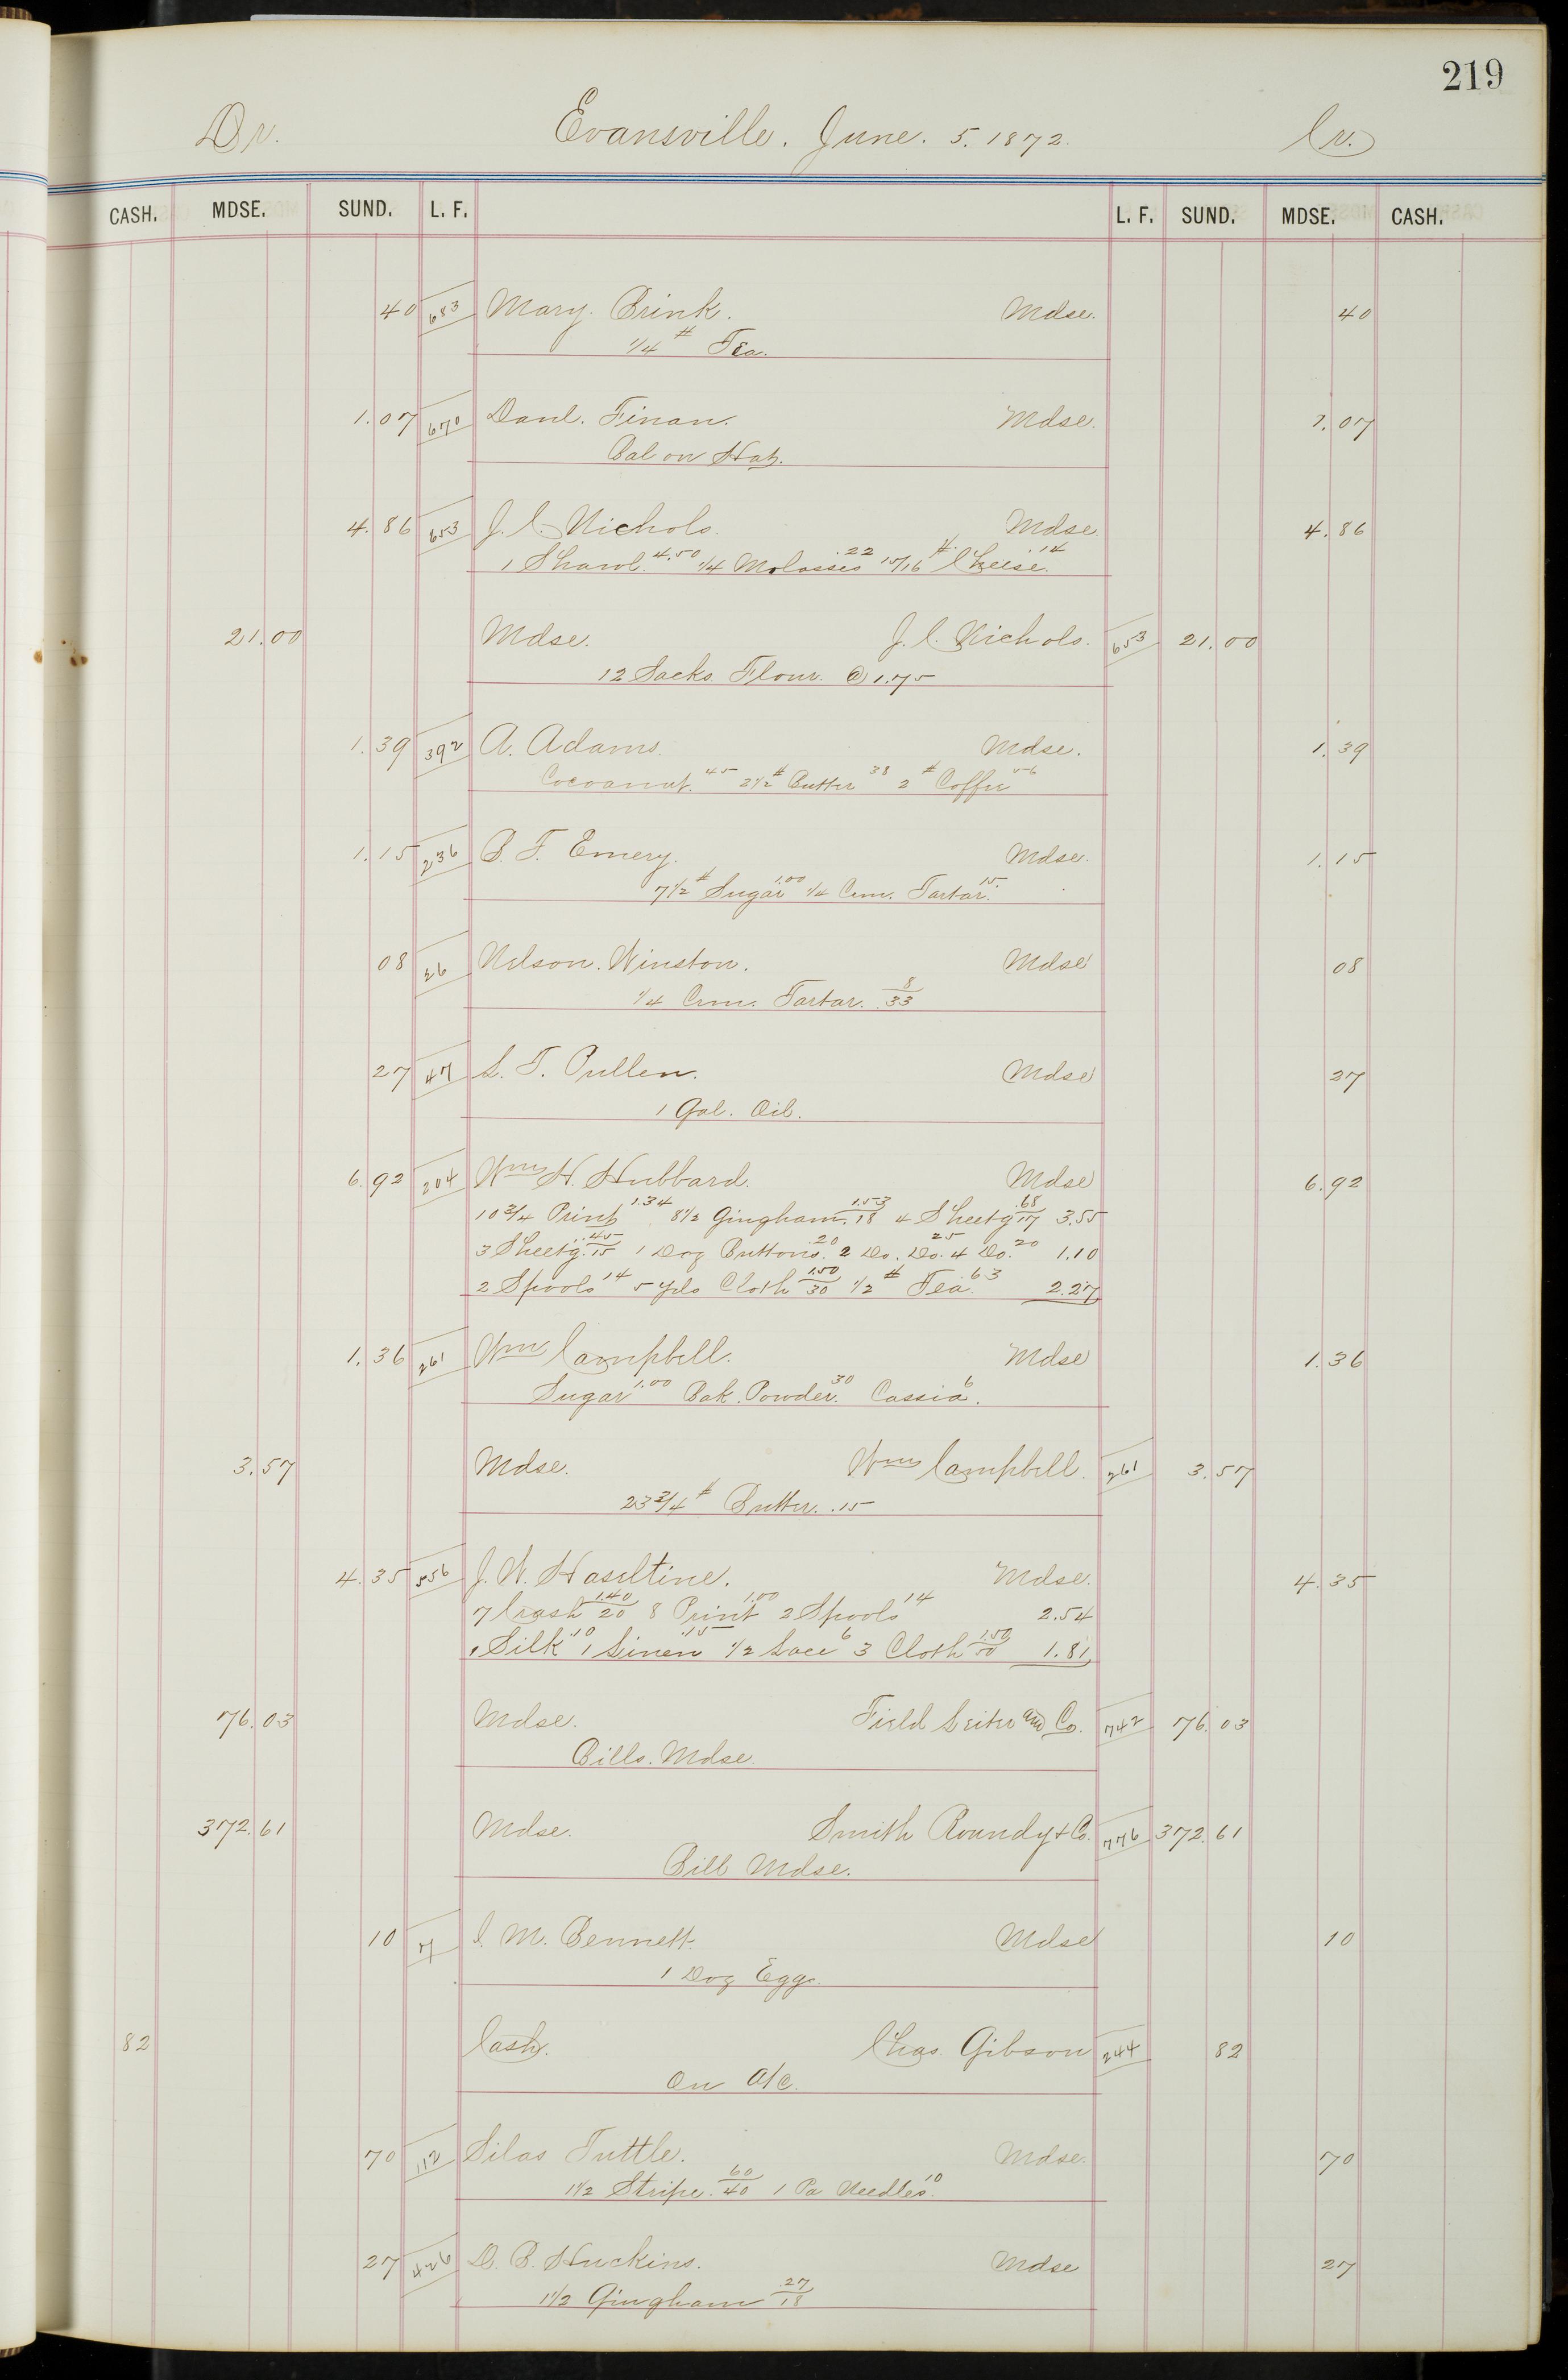 219
Dr. Evansville. June. 5. 1872. Cr.
CASH. MDSE. SUND. L. F. L. F. SUND. MDSE. CASH.
40 683 Mary. Brink. Mdse. 40
1/4 # Tea.
1.07 670 Danl. Finan. Mdse. 1.07
Bal on Hat.
4.86 653 J. C. Nichols. Mdse. 4.86
1 Shawl. 4.50 1/4 Molasses .22 15/16 # Cheese. .14
21.00 Mdse. J. C. Nichols. 653 21.00
12 Sacks Flour. @ 1.75
1.39 392 A. Adams. Mdse. 1.39
Cocoanut. 45 2 1/2 # Butter 38 2 # Coffee 56
1.15 236 B. F. Emery. Mdse. 1.15
7 1/2 # Sugar 1.00 1/4 Crm. Tartar. 15.
08 36 Nelson. Winston. Mdse 08
1/4 Crm. Tartar. 8/33
27 47 S. T. Pullen. Mdse 27
1 Gal. Oil.
6.92 204 Wm H. Hubbard. Mdse 6.92
10 3/4 Print 1.34 8 1/2 Gingham. 1.53/18 4 Sheetg .68/17 3.55
3 Sheetg. .45/15 1 Doz Buttons. .20 2 Do. Do. 25 4 Do. 20 1.10
2 Spools 14 5 yds Cloth 1.50/30 1/2 # Tea. 63 2.27
1.36 261 Wm Campbell. Mdse 1.36
Sugar 1.00 Bak. Powder. 30 Cassia. 6
3.57 Mdse. Wm Campbell. 261 3.57
23 3/4 # Butter. .15
4.35 556 J. W. Haseltine. Mdse. 4.35
7 Crash 1.40/20 8 Print 1.00 2 Spools 14 2.54
1 Silk .10 1 Linen .15 1/2 Lace 6 3 Cloth 1.50/50 1.81
76.03 Mdse. Field Leiter and Co. 742 76.03
Bills. Mdse.
372.61 Mdse. Smith Roundy & Co. 776 372.61
Bill Mdse.
10 7 I. M. Bennett. Mdse 10
1 Doz Eggs.
82 Cash. Chas. Gibson 244 82
On A/c.
70 112 Silas Tuttle. Mdse. 70
1 1/2 Stripe. 60/40 1 Pa Needles. 10
27 426 D. B. Huckins. Mdse 27
1 1/2 Gingham .27/18